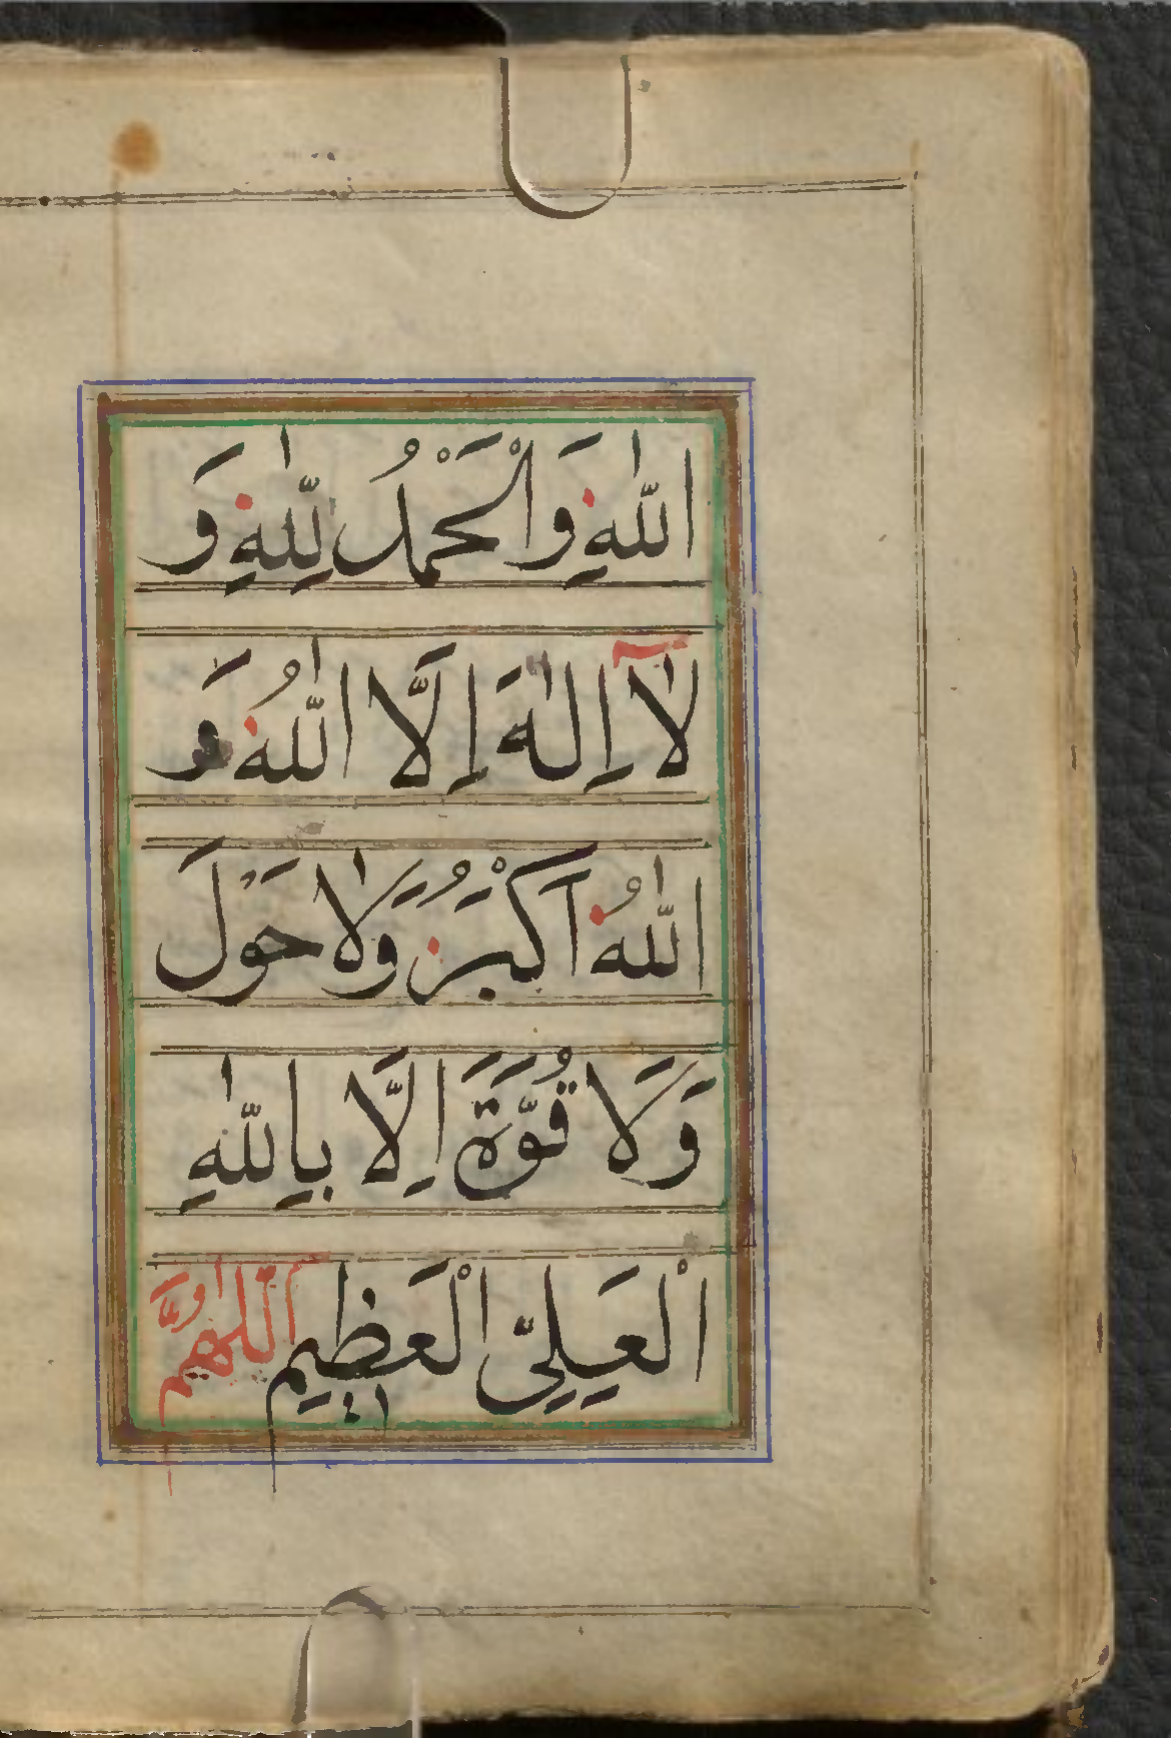 اللّٰهِ وَالْحَمْدُ لِلّٰهِ وَ
لَآ اِلٰهَ اِلَّا اللّٰهُ وَ
اللّٰهُ اَكْبَرُ وَلَا حَوْلَ
وَلَا قُوَّةَ اِلَّا بِاللّٰهِ
الْعَلِىِّ الْعَظِيمِ اَللّٰهُمَّ